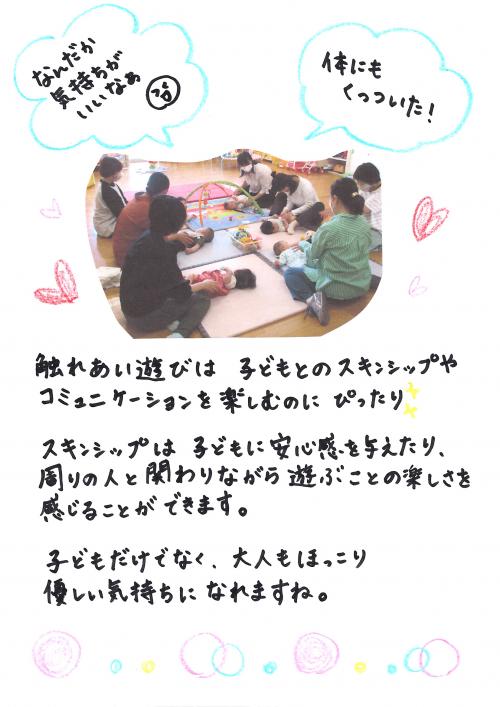 なんだか
気持ちが
いいなぁ
体にも
くっついた！
触れあい遊びは 子どもとのスキンシップや
コミュニケーションを楽しむのに ぴったり
スキンシップは 子どもに安心感を与えたり、
周りの人と関わりながら遊ぶことの楽しさを
感じることができます。
子どもだけでなく、大人もほっこり
優しい気持ちになれますね。